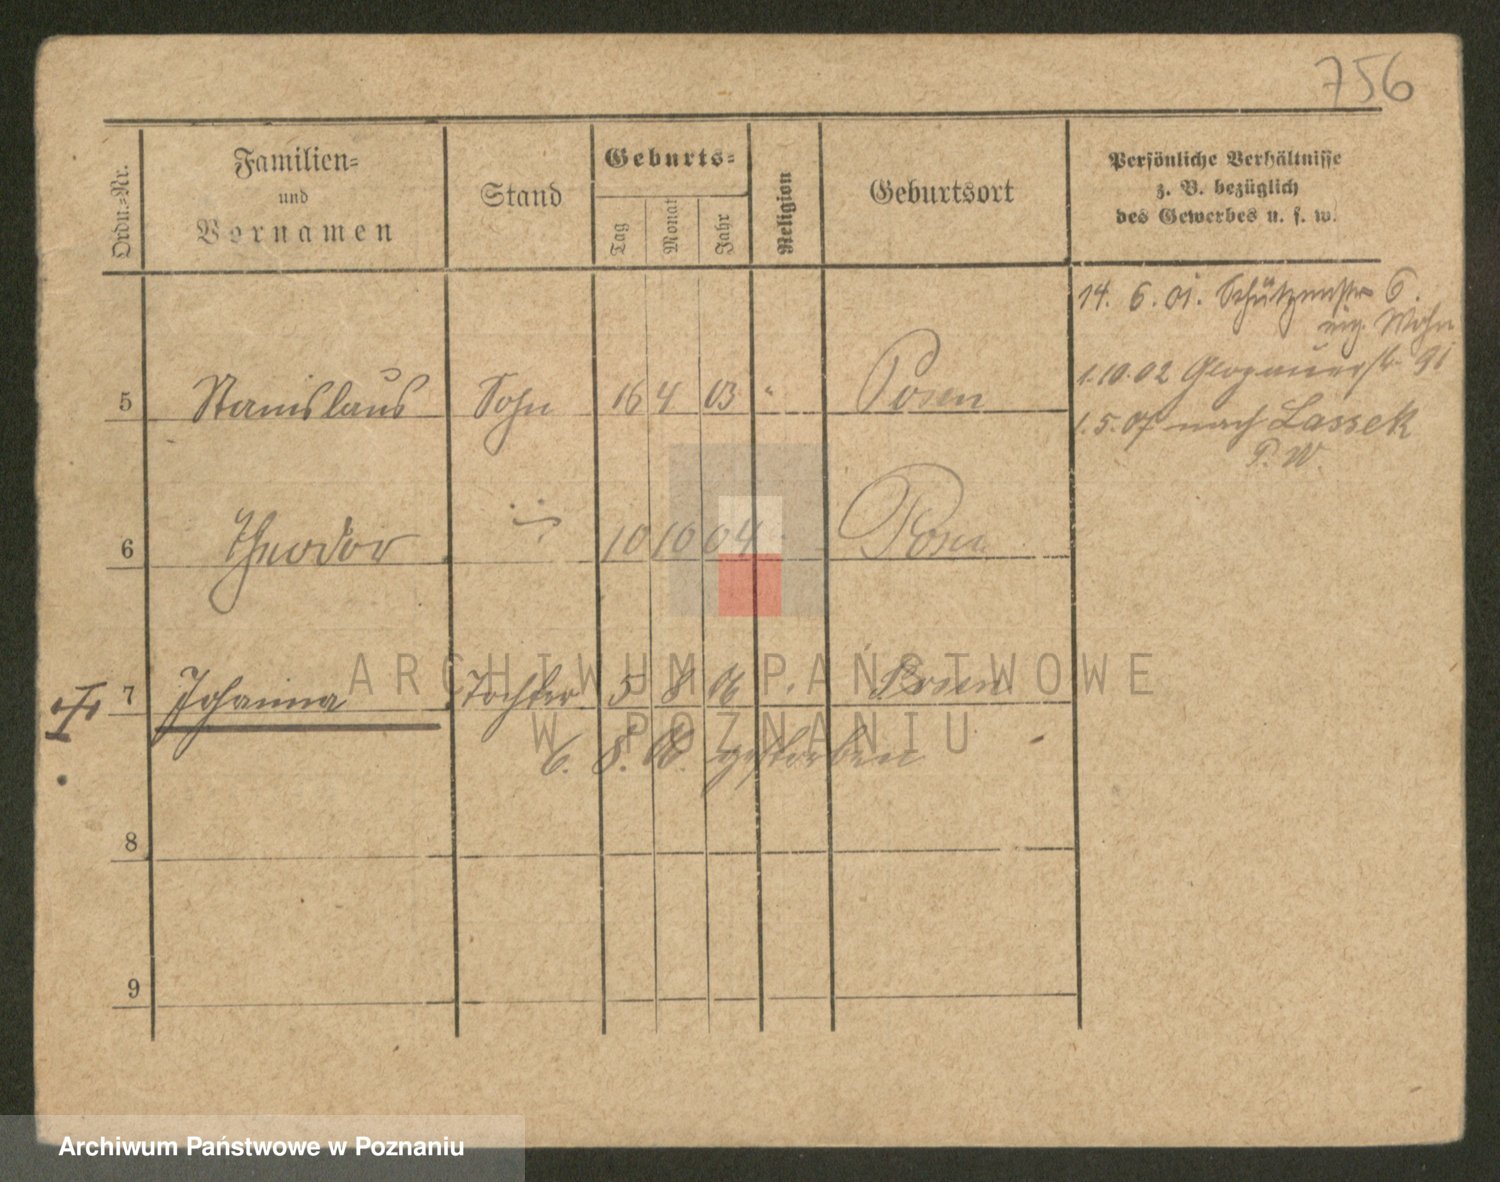 756
Ordn.-Nr.
Familien-
und
Vornamen
Stand
Geburts-
Tag
Monat
Jahr
Religion
Geburtsort
Persönliche Verhältnisse
z. B. bezüglich
des Gewerbes u. s. w.
14. 6. 01. Schützenstr 6.
eig. Wohn
1.10.02 Glogauerstr. 91
1.5.07 nach Lassek
P. W.
5 Stanislaus Sohn 16 4 03 " Posen
6 Theodor 10 10 04 Posen
7 Johanna Tochter 5 8 06 Posen
6. 8. 06. gestorben
8
9
ARCHIWUM PAŃSTWOWE
W POZNANIU
Archiwum Państwowe w Poznaniu